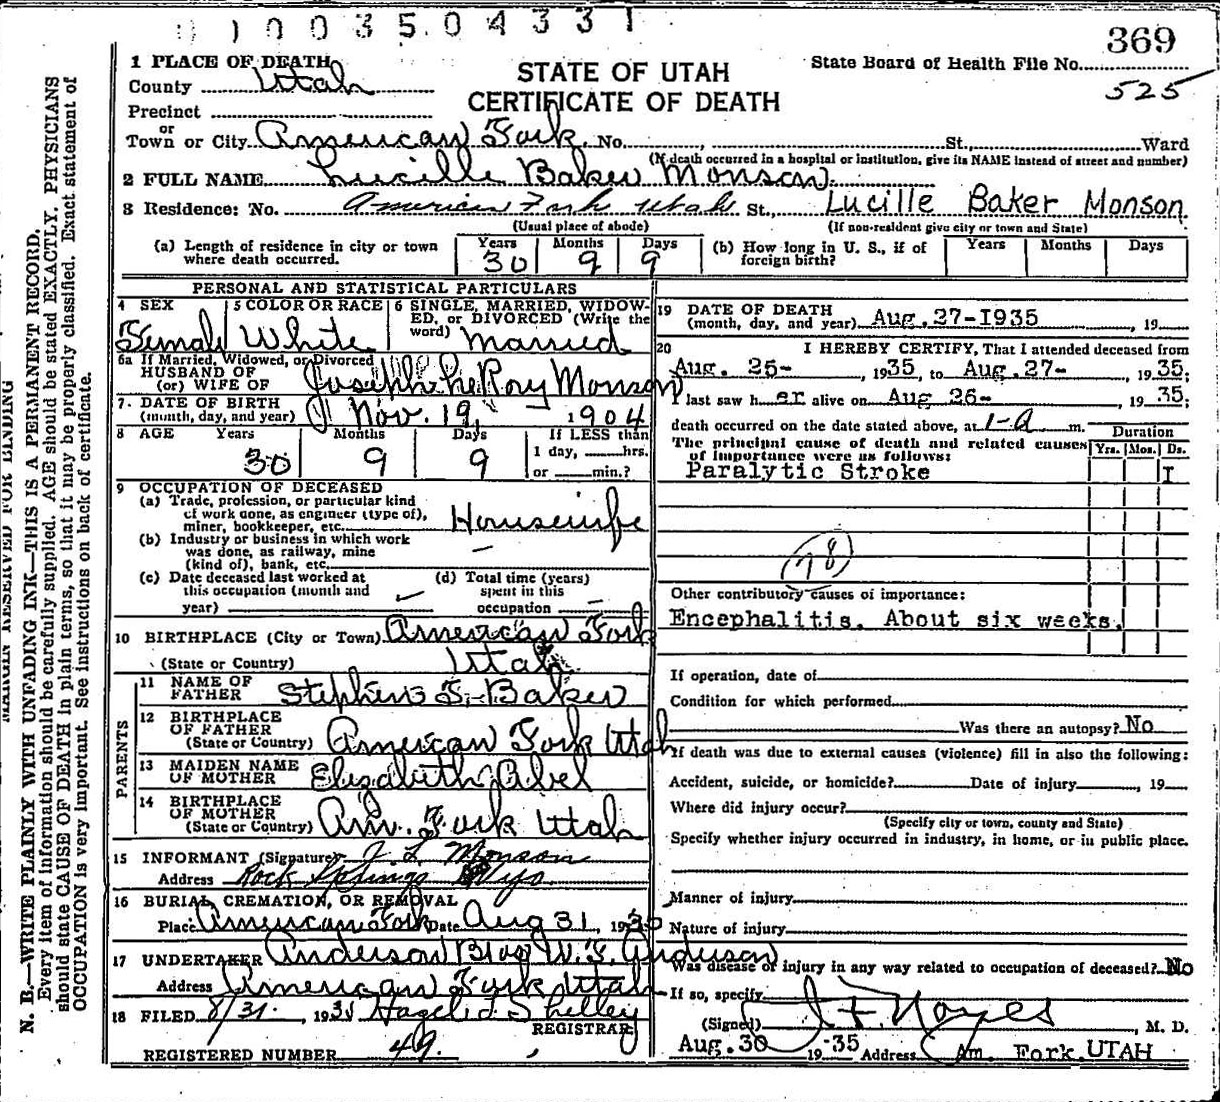 1 0 0 3 5 0 4 3 3 1
369
State Board of Health File No.
525
STATE OF UTAH
CERTIFICATE OF DEATH
1 PLACE OF DEATH
County Utah
Precinct
or
Town or City American Fork. No. St., Ward
(If death occurred in a hospital or institution, give its NAME instead of street and number)
2 FULL NAME Lucille Baker Monson
3 Residence: No. American Fork Utah St., Lucille Baker Monson
(Usual place of abode) (If non-resident give city or town and State)
(a) Length of residence in city or town where death occurred. Years 30 Months 9 Days 9
(b) How long in U. S., if of foreign birth? Years Months Days
PERSONAL AND STATISTICAL PARTICULARS
4 SEX Female
5 COLOR OR RACE White
6 SINGLE, MARRIED, WIDOWED, or DIVORCED (Write the word) Married
6a If Married, Widowed, or Divorced
HUSBAND OF
(or) WIFE OF Joseph LeRoy Monson
7. DATE OF BIRTH
(month, day, and year) Nov. 19, 1904
8 AGE Years 30 Months 9 Days 9 If LESS than
1 day, hrs.
or min.?
9 OCCUPATION OF DECEASED
(a) Trade, profession, or particular kind
of work done, as engineer (type of),
miner, bookkeeper, etc. Housewife
(b) Industry or business in which work
was done, as railway, mine
(kind of), bank, etc. —
(c) Date deceased last worked at
this occupation (month and
year)
(d) Total time (years)
spent in this
occupation —
10 BIRTHPLACE (City or Town) American Fork
(State or Country) Utah
PARENTS
11 NAME OF
FATHER Stephen F. Baker
12 BIRTHPLACE
OF FATHER
(State or Country) American Fork Utah
13 MAIDEN NAME
OF MOTHER Elisabeth Abel
14 BIRTHPLACE
OF MOTHER
(State or Country) Am. Fork Utah
15 INFORMANT (Signature) J L Monson
Address Rock Springs Wyo
16 BURIAL, CREMATION, OR REMOVAL
Place American Fork Date Aug 31, 1935
17 UNDERTAKER Anderson W. S. Anderson
Address American Fork Utah
18 FILED 8/31, 1935 Shelley
REGISTRAR
REGISTERED NUMBER 49.
19 DATE OF DEATH
(month, day, and year) Aug. 27-1935, 19
20 I HEREBY CERTIFY, That I attended deceased from
Aug. 25-, 1935, to Aug. 27-, 1935;
I last saw her alive on Aug 26-, 1935;
death occurred on the date stated above, at 1-a m.
Duration
The principal cause of death and related causes
of importance were as follows: Yrs. Mos. Ds.
Paralytic Stroke I
78
Other contributory causes of importance:
Encephalitis. About six weeks.
If operation, date of
Condition for which performed
Was there an autopsy? No
If death was due to external causes (violence) fill in also the following:
Accident, suicide, or homicide? Date of injury, 19
Where did injury occur?
(Specify city or town, county and State)
Specify whether injury occurred in industry, in home, or in public place.
Manner of injury
Nature of injury
Was disease or injury in any way related to occupation of deceased? No
If so, specify
(Signed) Noyes, M. D.
Aug. 30 19 35 Address Am. Fork. UTAH
MARGIN RESERVED FOR BINDING
N. B.—WRITE PLAINLY WITH UNFADING INK—THIS IS A PERMANENT RECORD.
Every item of information should be carefully supplied. AGE should be stated EXACTLY. PHYSICIANS
should state CAUSE OF DEATH in plain terms, so that it may be properly classified. Exact statement of
OCCUPATION is very important. See instructions on back of certificate.